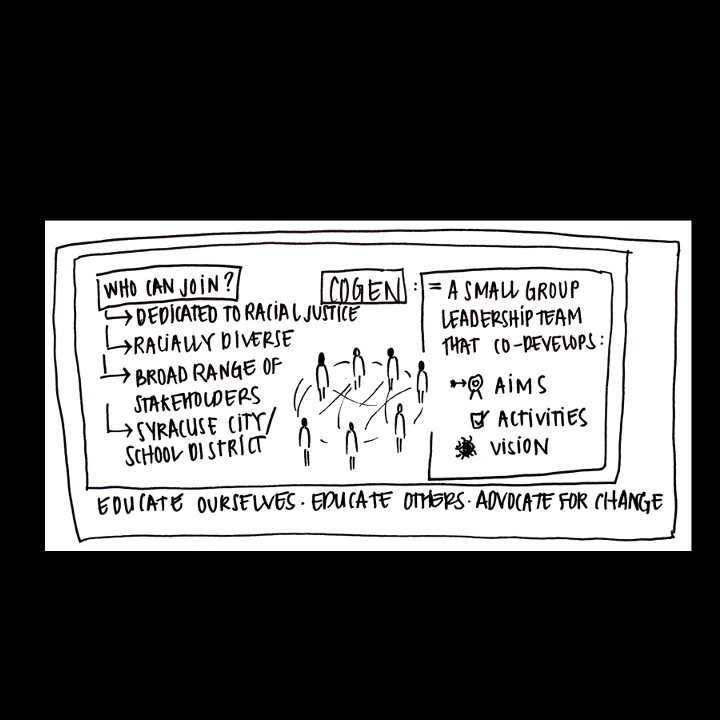 WHO CAN JOIN?
DEDICATED TO RACIAL JUSTICE
RACIALLY DIVERSE
BROAD RANGE OF
STAKEHOLDERS
SYRACUSE CITY/
SCHOOL DISTRICT
COGEN :
= A SMALL GROUP
LEADERSHIP TEAM
THAT CO-DEVELOPS:
AIMS
ACTIVITIES
VISION
EDUCATE OURSELVES · EDUCATE OTHERS · ADVOCATE FOR CHANGE